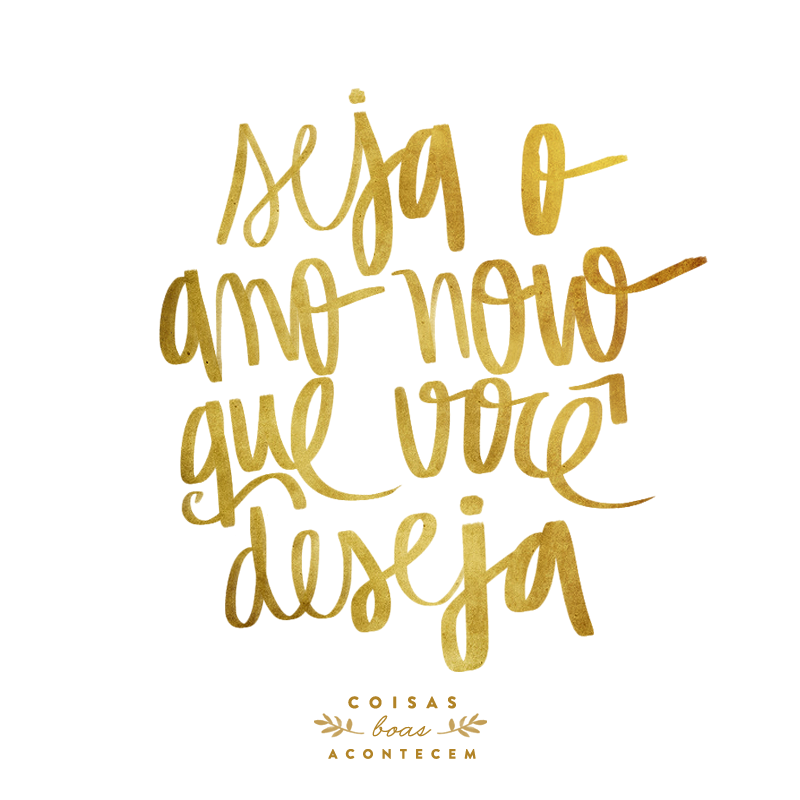 seja o
ano novo
que você
deseja
COISAS
boas
ACONTECEM